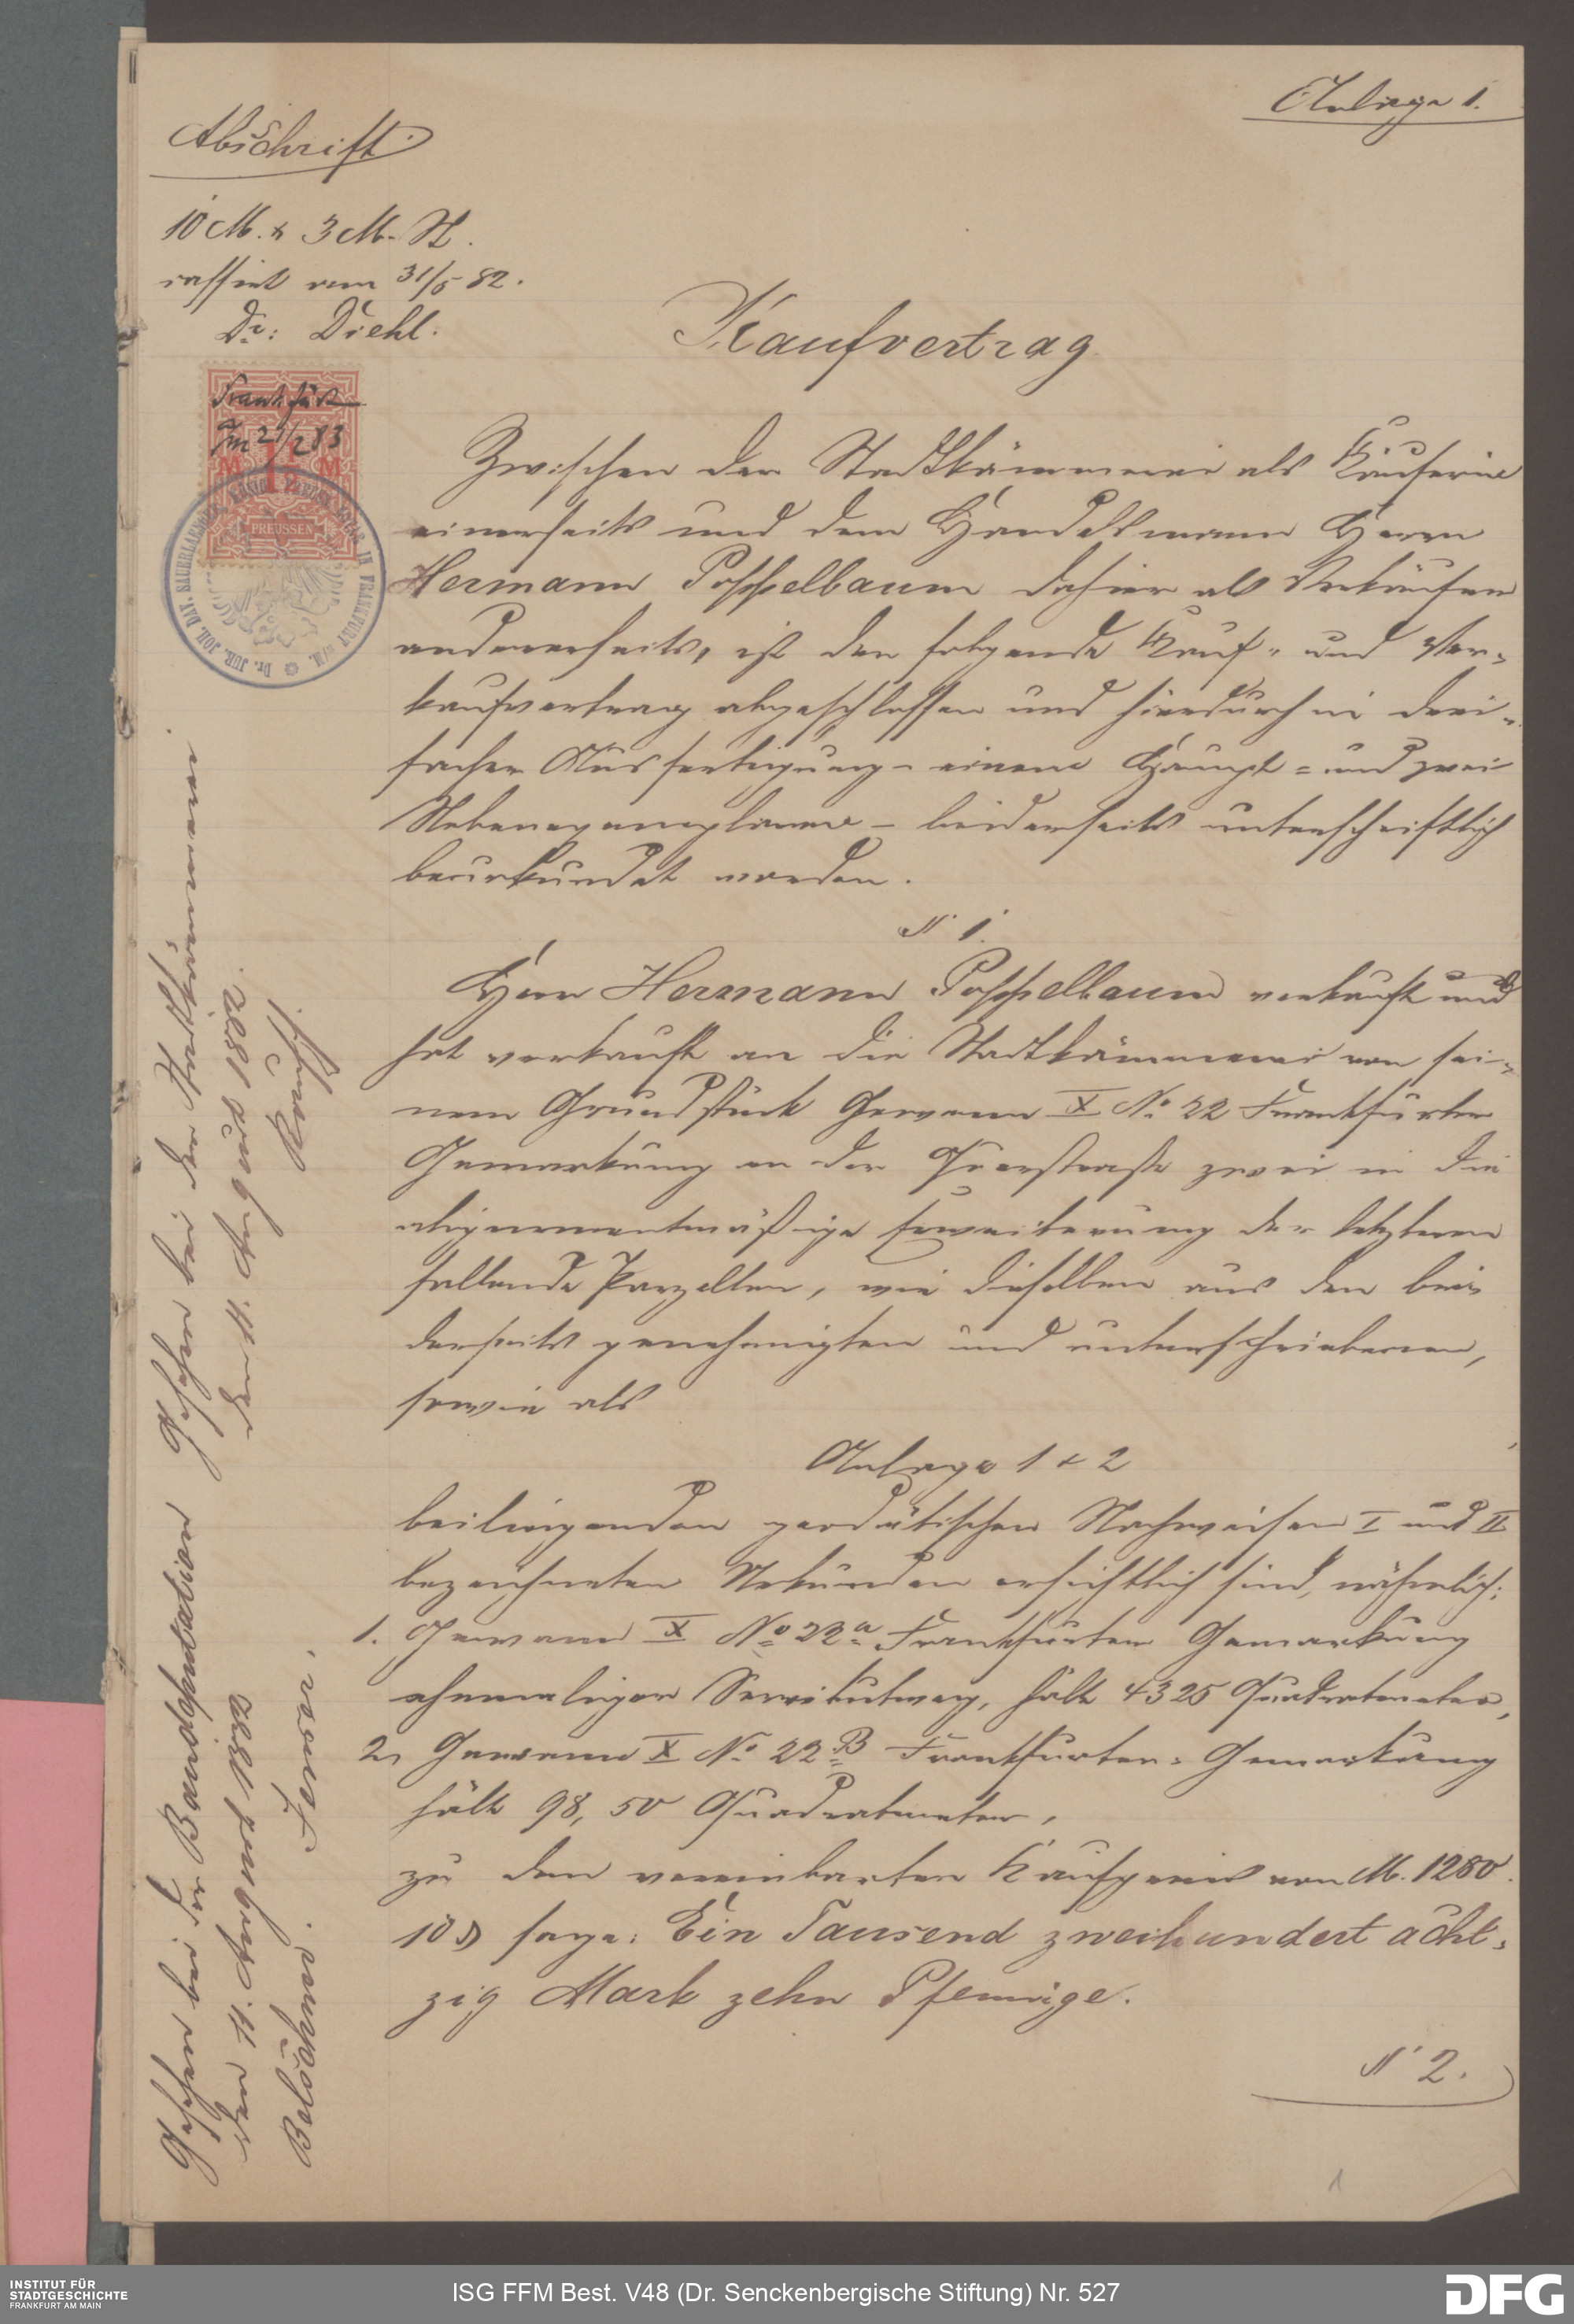 Anlage 1.
Abschrift
10 M. & 3 M. St.
cassirt vom 31/5 82.
Dr: Diehl.
Frankfurt
a/m 21/2 83
M 1½ M
PREUSSEN
Dr. JUR. JOH. DAV. SAUERLAENDER IN FRANKFURT a/M.
Kaufvertrag
Zwischen der Stadtkämmerei als Käuferin
einerseits und dem Handelsmann Herrn
Hermann Poppelbaum dahier als Verkäufer
andererseits, ist der folgende Kauf- und Ver-
kaufvertrag abgeschlossen und hierdurch in drei-
facher Ausfertigung - einem Haupt- und zwei
Nebenexemplaren - beiderseits unterschriftlich
beurkundet worden.
N 1.
Herr Hermann Poppelbaum verkauft und
hat verkauft an die Stadtkämmerei von sei-
nem Grundstück Gewann X No. 22 Frankfurter
Gemarkung an der Querstraße zwei in die
alignementmäßige Erweiterung der letzteren
fallende Parzellen, wie dieselben aus den bei-
derseits genehmigten und unterschriebenen,
sowie als
Anlage 1 & 2
beiliegenden geodätischen Nachweisen I und II
bezeichneten Urkunden ersichtlich sind, nähmlich:
1. Gewann X No. 22a Frankfurter Gemarkung
ehemaliger Servitutweg, hält 4325 Quadratmeter,
2, Gewann X No. 22B Frankfurter-Gemarkung
hält 98,50 Quadratmeter,
zu dem vereinbarten Kaufpreis von M. 1280.
10 ₰ sage: Ein Tausend zweihundert acht-
zig Mark zehn Pfennige.
N 2.
Gesehen bei der Baudeputation
den 11. August 1882
Behöchnes. Feuser.
Gesehen bei der Stadtkämmerei
den 11. August 1882.
1
INSTITUT FÜR
STADTGESCHICHTE
FRANKFURT AM MAIN
ISG FFM Best. V48 (Dr. Senckenbergische Stiftung) Nr. 527
DFG